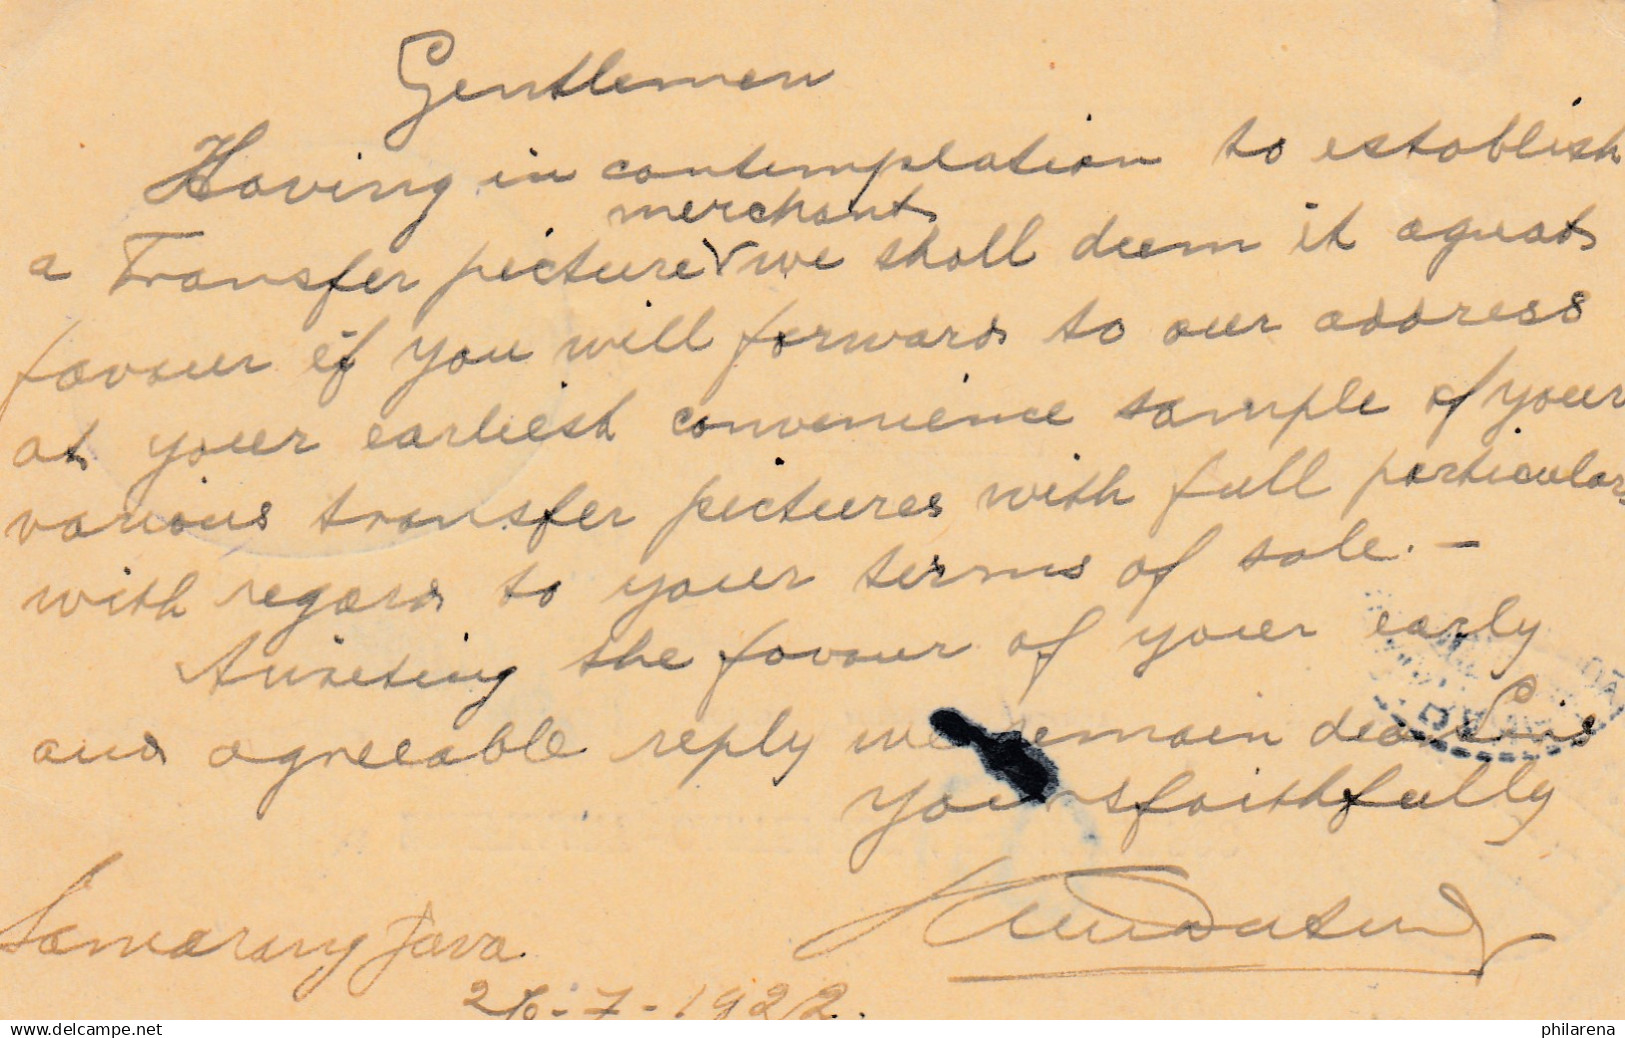 Gentlemen
Having in contemplation to establish
merchant
a Transfer picture we shall deem it a great
favour if you will forward to our address
at your earliest convenience sample of your
various transfer pictures with full particulars
with regard to your terms of sale. -
Awaiting the favour of your early
and agreeable reply we remain dear Sirs
Yours faithfully
Samarang Java
26-7-1922.
delcampe.net
philarena